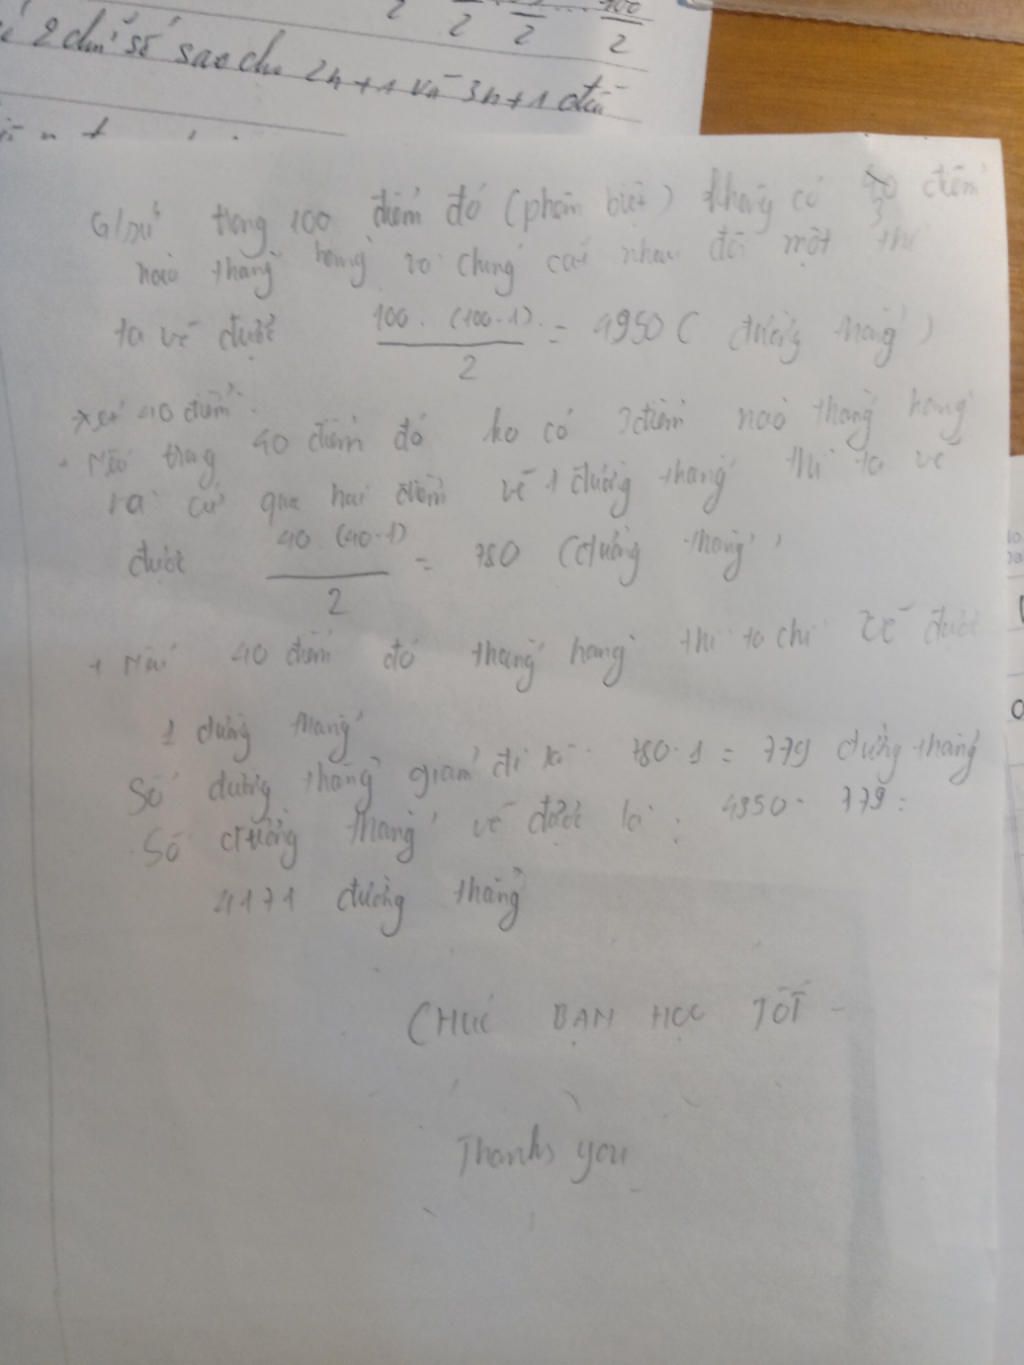 2 2 2 100/2
2 chữ số sao cho 2n+1 và 3n+1 đều
G/sử trong 100 điểm đó (phân biệt) không có 3 điểm
nào thẳng hàng và chúng cắt nhau đôi một thì
ta vẽ được 100.(100-1)/2 = 4950 (đường thẳng)
*xét 40 điểm.
+ Nếu trong 40 điểm đó ko có 3 điểm nào thẳng hàng
và cứ qua hai điểm vẽ 1 đường thẳng thì ta vẽ
được 40.(40-1)/2 = 780 (đường thẳng)
+ Nếu 40 điểm đó thẳng hàng thì ta chỉ vẽ được
1 đường thẳng
Số đường thẳng giảm đi là: 780-1 = 779 đường thẳng
Số đường thẳng vẽ được là: 4950-779=
4171 đường thẳng
CHÚC BẠN HỌC TỐT
Thanks you